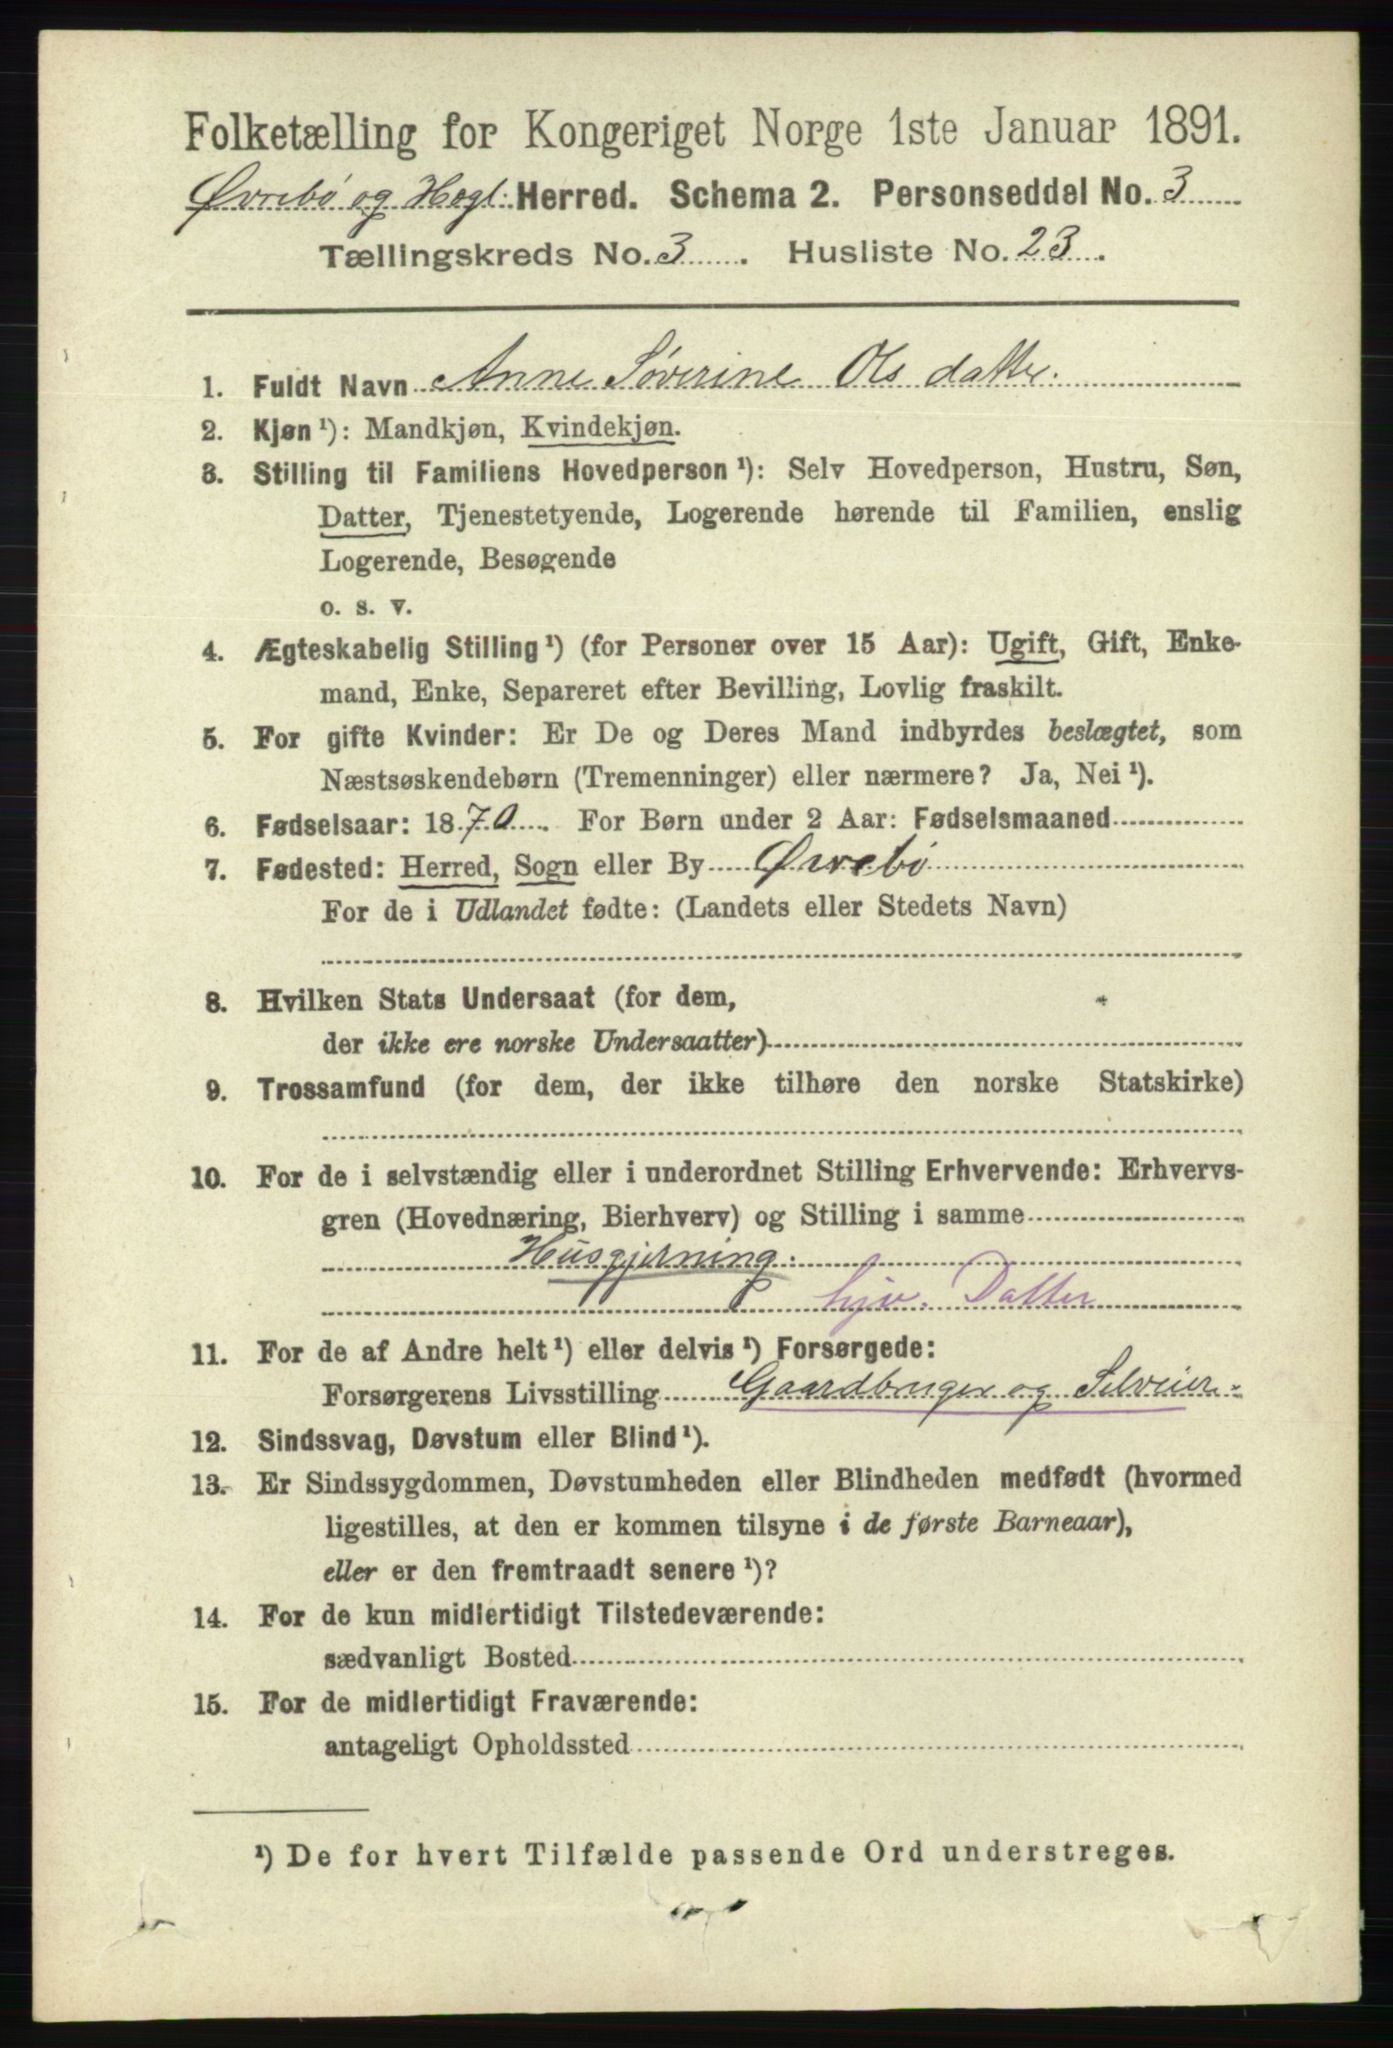 Folketælling for Kongeriget Norge 1ste Januar 1891.
Øvrebø og Hægl: Herred. Schema 2. Personseddel No. 3
Tællingskreds No. 3. Husliste No. 23.
1. Fuldt Navn Anne Søverine Olsdatter.
2. Kjøn ¹): Mandkjøn, Kvindekjøn.
3. Stilling til Familiens Hovedperson ¹): Selv Hovedperson, Hustru, Søn,
Datter, Tjenestetyende, Logerende hørende til Familien, enslig
Logerende, Besøgende
o. s. v.
4. Ægteskabelig Stilling ¹) (for Personer over 15 Aar): Ugift, Gift, Enke-
mand, Enke, Separeret efter Bevilling, Lovlig fraskilt.
5. For gifte Kvinder: Er De og Deres Mand indbyrdes beslægtet, som
Næstsøskendebørn (Tremenninger) eller nærmere? Ja, Nei ¹).
6. Fødselsaar: 1870. For Børn under 2 Aar: Fødselsmaaned
7. Fødested: Herred, Sogn eller By Øvrebø
For de i Udlandet fødte: (Landets eller Stedets Navn)
8. Hvilken Stats Undersaat (for dem,
der ikke ere norske Undersaatter)
9. Trossamfund (for dem, der ikke tilhøre den norske Statskirke)
10. For de i selvstændig eller i underordnet Stilling Erhvervende: Erhvervs-
gren (Hovednæring, Bierhverv) og Stilling i samme
Husgjerning.
hjv. Datter
11. For de af Andre helt ¹) eller delvis ¹) Forsørgede:
Forsørgerens Livsstilling Gaardbruger og Selveier.
12. Sindssvag, Døvstum eller Blind ¹).
13. Er Sindssygdommen, Døvstumheden eller Blindheden medfødt (hvormed
ligestilles, at den er kommen tilsyne i de første Barneaar),
eller er den fremtraadt senere ¹)?
14. For de kun midlertidigt Tilstedeværende:
sædvanligt Bosted
15. For de midlertidigt Fraværende:
antageligt Opholdssted
¹) De for hvert Tilfælde passende Ord understreges.